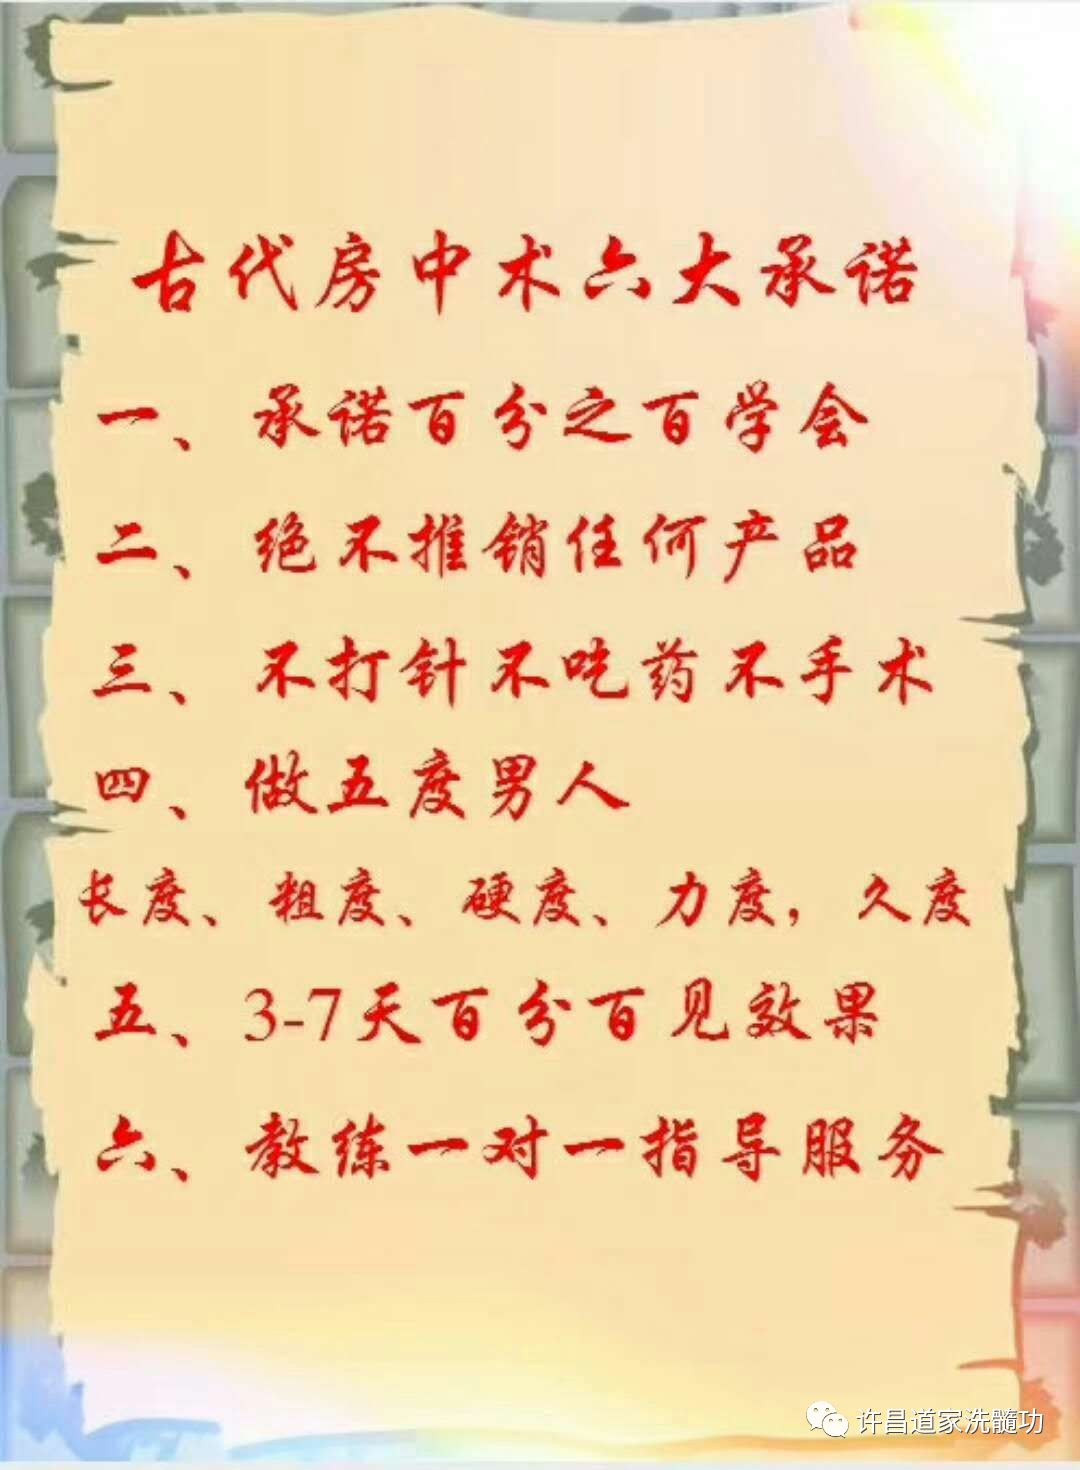 古代房中术六大承诺
一、承诺百分之百学会
二、绝不推销任何产品
三、不打针不吃药不手术
四、做五度男人
长度、粗度、硬度、力度，久度
五、3-7天百分百见效果
六、教练一对一指导服务
许昌道家洗髓功